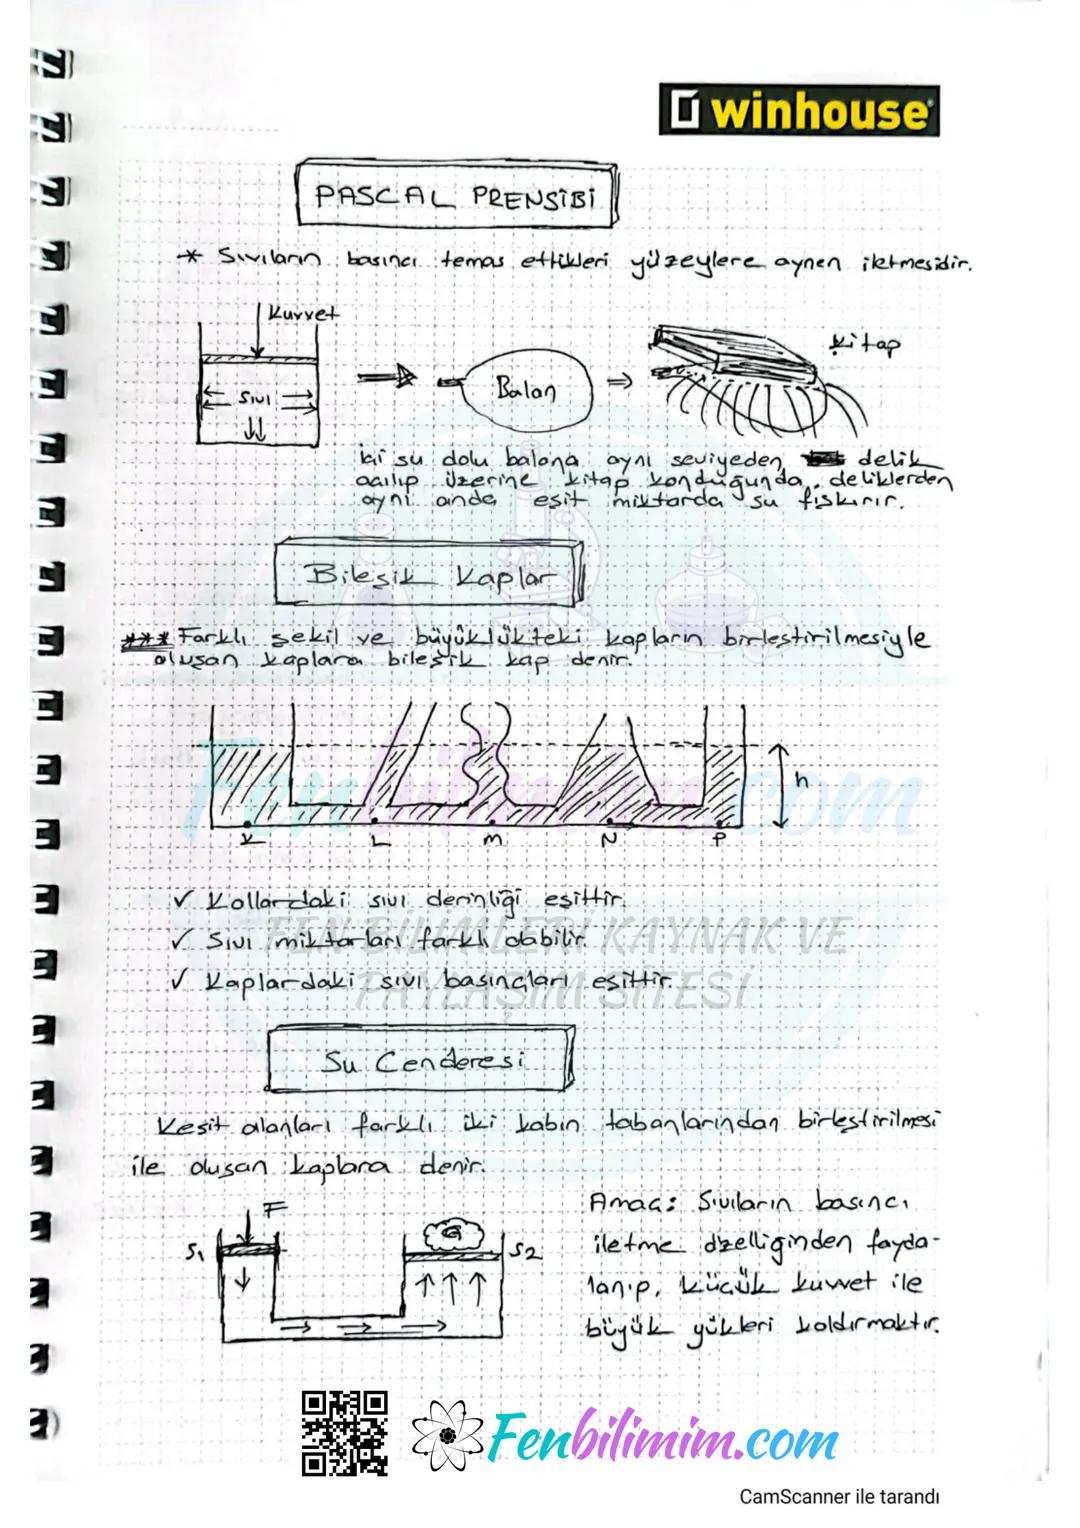 winhouse
PASCAL PRENSİBİ
* Sıvıların basıncı temas ettikleri yüzeylere aynen iletmesidir.
Kuvvet
Kitap
Sıvı
Balon
İçi su dolu balona aynı seviyeden delik
açılıp üzerine kitap konduğunda, deliklerden
aynı anda eşit miktarda su fışkırır.
Bileşik Kaplar
*** Farklı şekil ve büyüklükteki kapların birleştirilmesiyle
oluşan kaplara bileşik kap denir.
h
K L M N P
Fenbilimim.com
✓ Kollardaki sıvı derinliği eşittir.
✓ Sıvı miktarları farklı olabilir.
✓ Kaplardaki sıvı basınçları eşittir.
FEN BİLİMLERİ KAYNAK VE
PAYLAŞIM SİTESİ
Su Cenderesi
Kesit alanları farklı iki kabın tabanlarından birleştirilmesi
ile oluşan kaplara denir.
F
S1
G
S2
Amaç: Sıvıların basıncı
iletme özelliğinden fayda-
lanıp, küçük kuvvet ile
büyük yükleri kaldırmaktır.
Fenbilimim.com
CamScanner ile tarandı